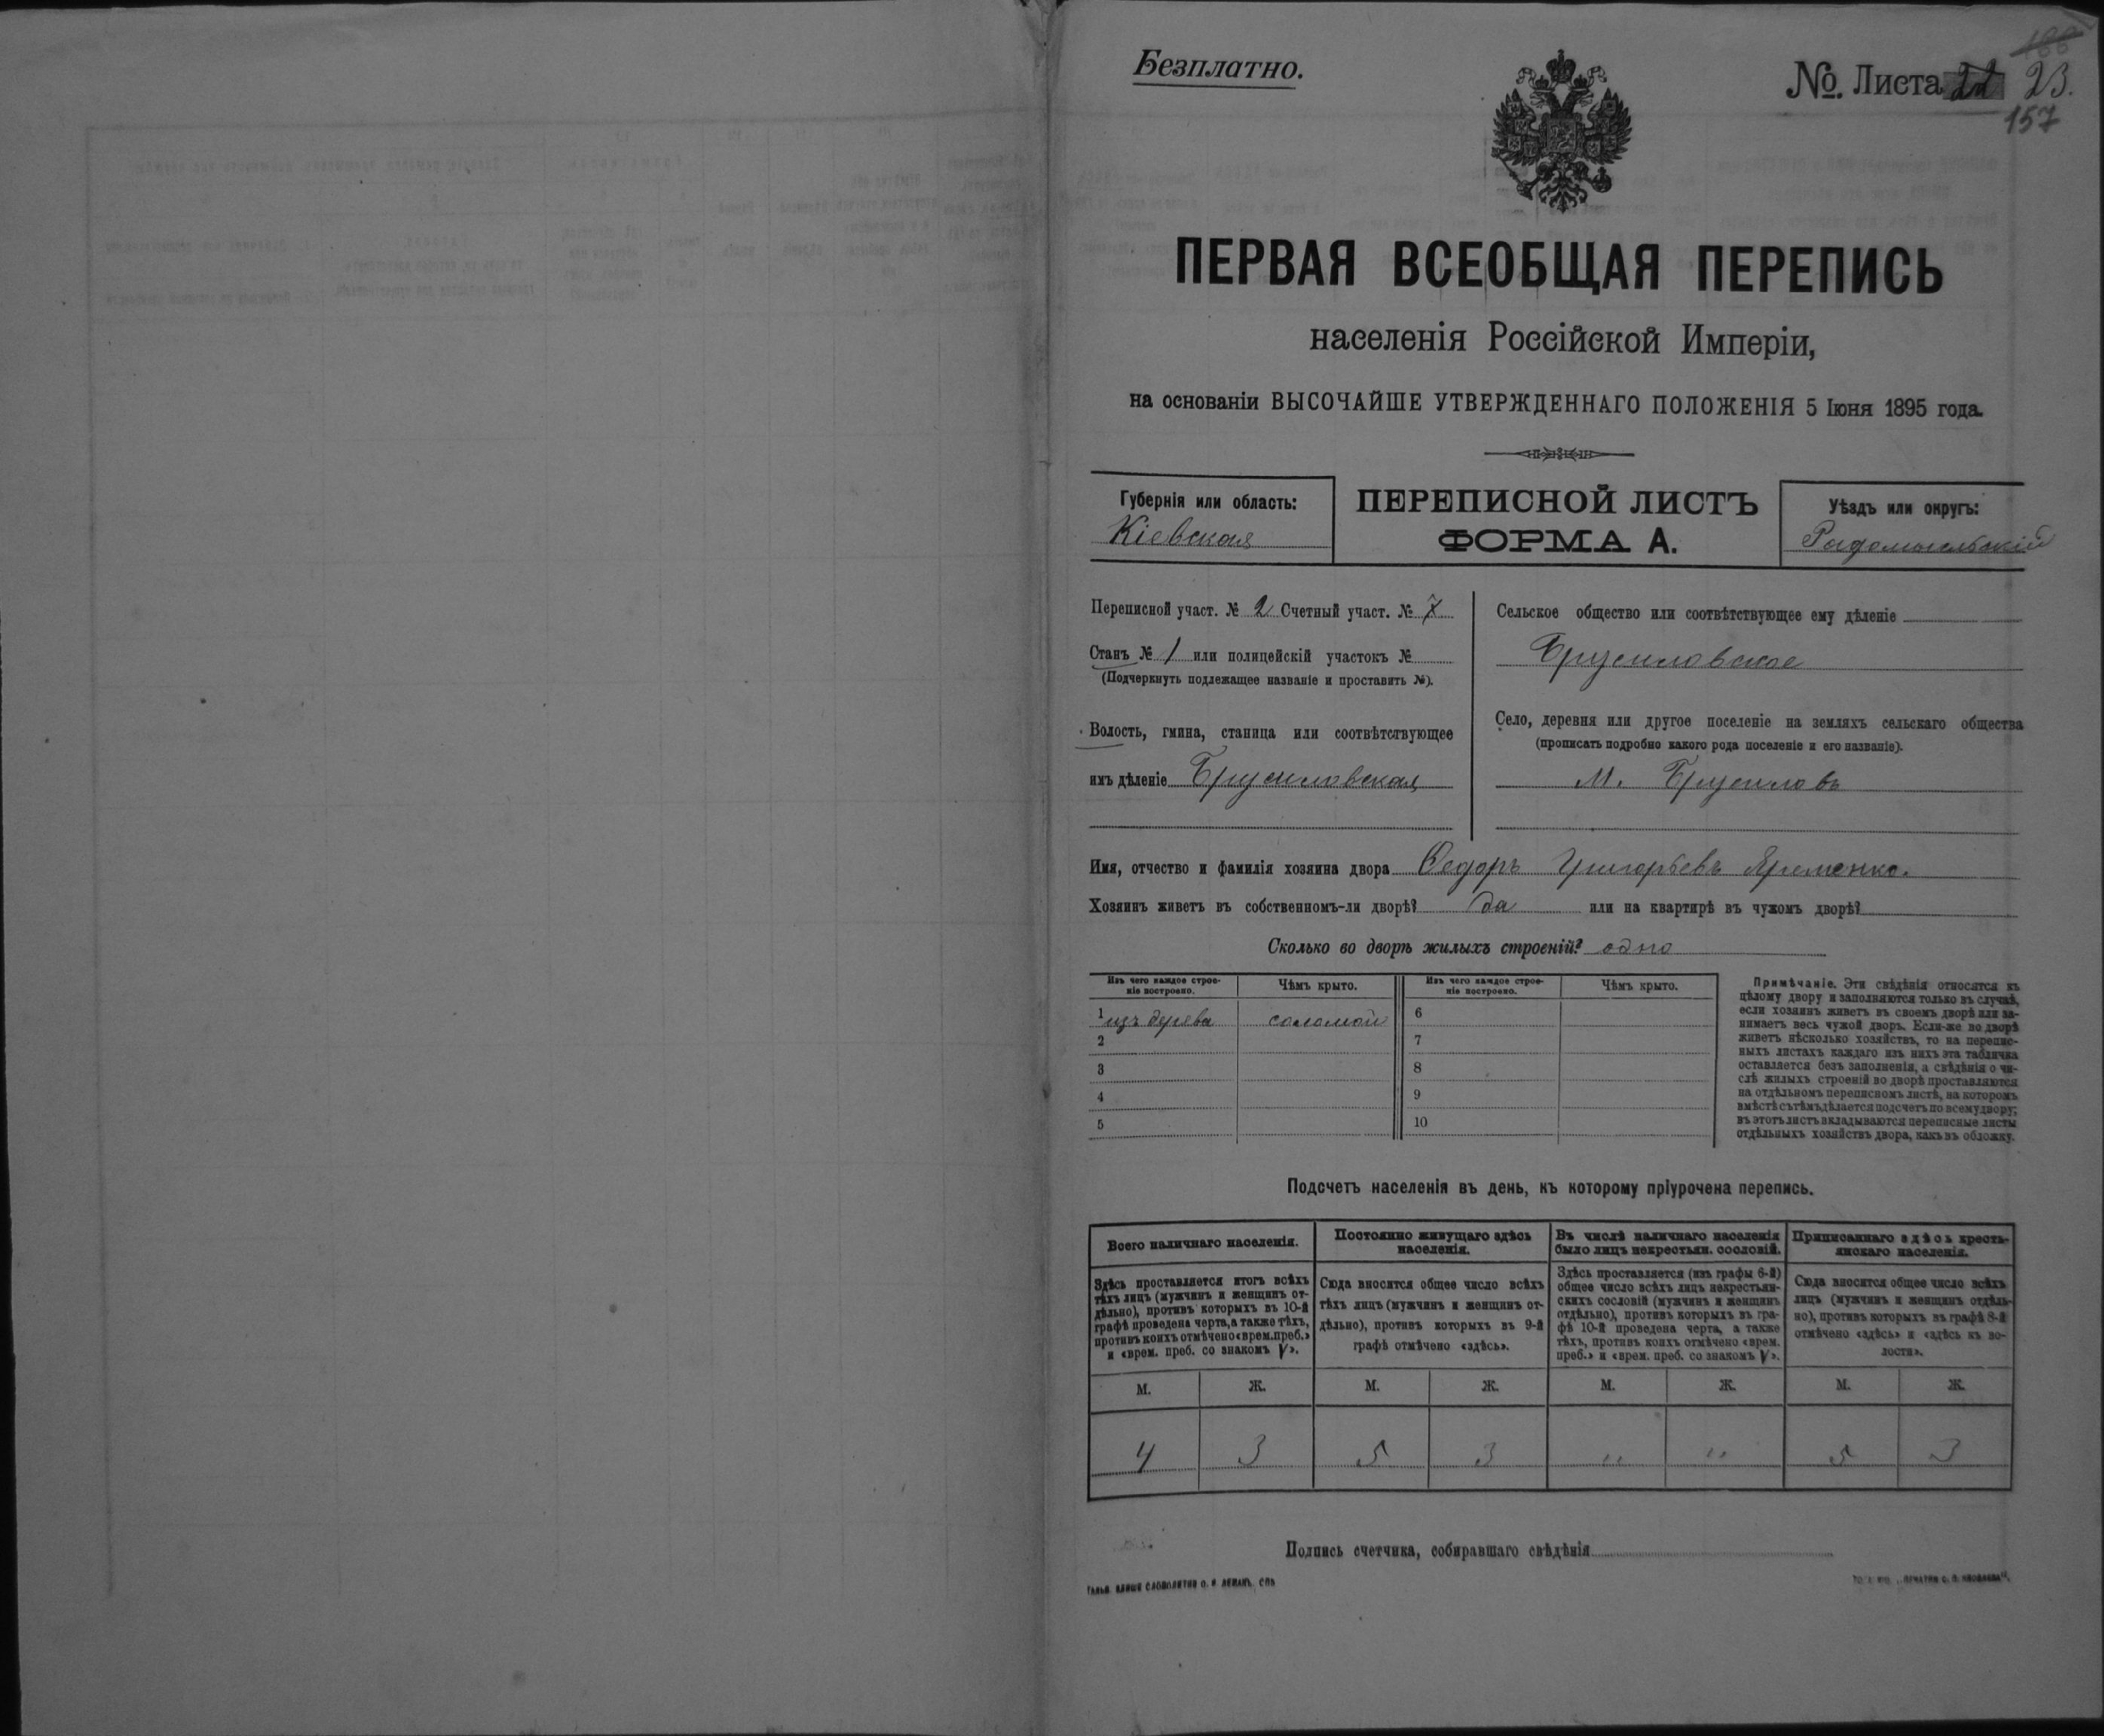 Безплатно.
№. Листа 22 23.
157
ПЕРВАЯ ВСЕОБЩАЯ ПЕРЕПИСЬ
населенія Россійской Имперіи,
на основаніи ВЫСОЧАЙШЕ УТВЕРЖДЕННАГО ПОЛОЖЕНІЯ 5 Іюня 1895 года.
Губернія или область:
Кіевская
ПЕРЕПИСНОЙ ЛИСТЪ
ФОРМА А.
Уѣздъ или округъ:
Радомысльскій
Переписной участ. № 2 Счетный участ. №
Станъ № 1 или полицейскій участокъ №
(Подчеркнуть подлежащее названіе и проставить №).
Волость, гмина, станица или соотвѣтствующее
имъ дѣленіе Брусиловская
Сельское общество или соотвѣтствующее ему дѣленіе
Брусиловское
Село, деревня или другое поселеніе на земляхъ сельскаго общества
(прописать подробно какого рода поселеніе и его названіе).
М. Брусиловъ
Имя, отчество и фамилія хозяина двора Ѳедоръ Григорьевъ Яременко.
Хозяинъ живетъ въ собственномъ-ли дворѣ? да или на квартирѣ въ чужомъ дворѣ?
Сколько во дворѣ жилыхъ строеній? одно
Изъ чего каждое строе-
ніе построено.
Чѣмъ крыто.
Изъ чего каждое строе-
ніе построено.
Чѣмъ крыто.
1 изъ дерева соломой 6
2 7
3 8
4 9
5 10
Примѣчаніе. Эти свѣдѣнія относятся къ
цѣлому двору и заполняются только въ случаѣ,
если хозяинъ живетъ въ своемъ дворѣ или за-
нимаетъ весь чужой дворъ. Если-же во дворѣ
живетъ нѣсколько хозяйствъ, то на перепис-
ныхъ листахъ каждаго изъ нихъ эта табличка
оставляется безъ заполненія, а свѣдѣнія о чи-
слѣ жилыхъ строеній во дворѣ проставляются
на отдѣльномъ переписномъ листѣ, на которомъ
вмѣстѣ съ тѣмъ дѣлается подсчетъ по всему двору;
въ этотъ листъ вкладываются переписные листы
отдѣльныхъ хозяйствъ двора, какъ въ обложку.
Подсчетъ населенія въ день, къ которому пріурочена перепись.
Всего наличнаго населенія.
Постоянно живущаго здѣсь
населенія.
Въ числѣ наличнаго населенія
было лицъ некрестьян. сословій.
Приписаннаго здѣсь кресть-
янскаго населенія.
Здѣсь проставляется итогъ всѣхъ
тѣхъ лицъ (мужчинъ и женщинъ от-
дѣльно), противъ которыхъ въ 10-й
графѣ проведена черта, а также тѣхъ,
противъ коихъ отмѣчено «врем. преб.»
и «врем. преб. со знакомъ V».
Сюда вносится общее число всѣхъ
тѣхъ лицъ (мужчинъ и женщинъ от-
дѣльно), противъ которыхъ въ 9-й
графѣ отмѣчено «здѣсь».
Здѣсь проставляется (изъ графы 6-й)
общее число всѣхъ лицъ некрестьян-
скихъ сословій (мужчинъ и женщинъ
отдѣльно), противъ которыхъ въ гра-
фѣ 10-й проведена черта, а также
тѣхъ, противъ коихъ отмѣчено «врем.
преб.» и «врем. преб. со знакомъ V».
Сюда вносится общее число всѣхъ
лицъ (мужчинъ и женщинъ отдѣль-
но), противъ которыхъ въ графѣ 8-й
отмѣчено «здѣсь» и «здѣсь къ во-
лости».
М. Ж. М. Ж. М. Ж. М. Ж.
4 3 5 3 " " 5 3
Подпись счетчика, собиравшаго свѣдѣнія